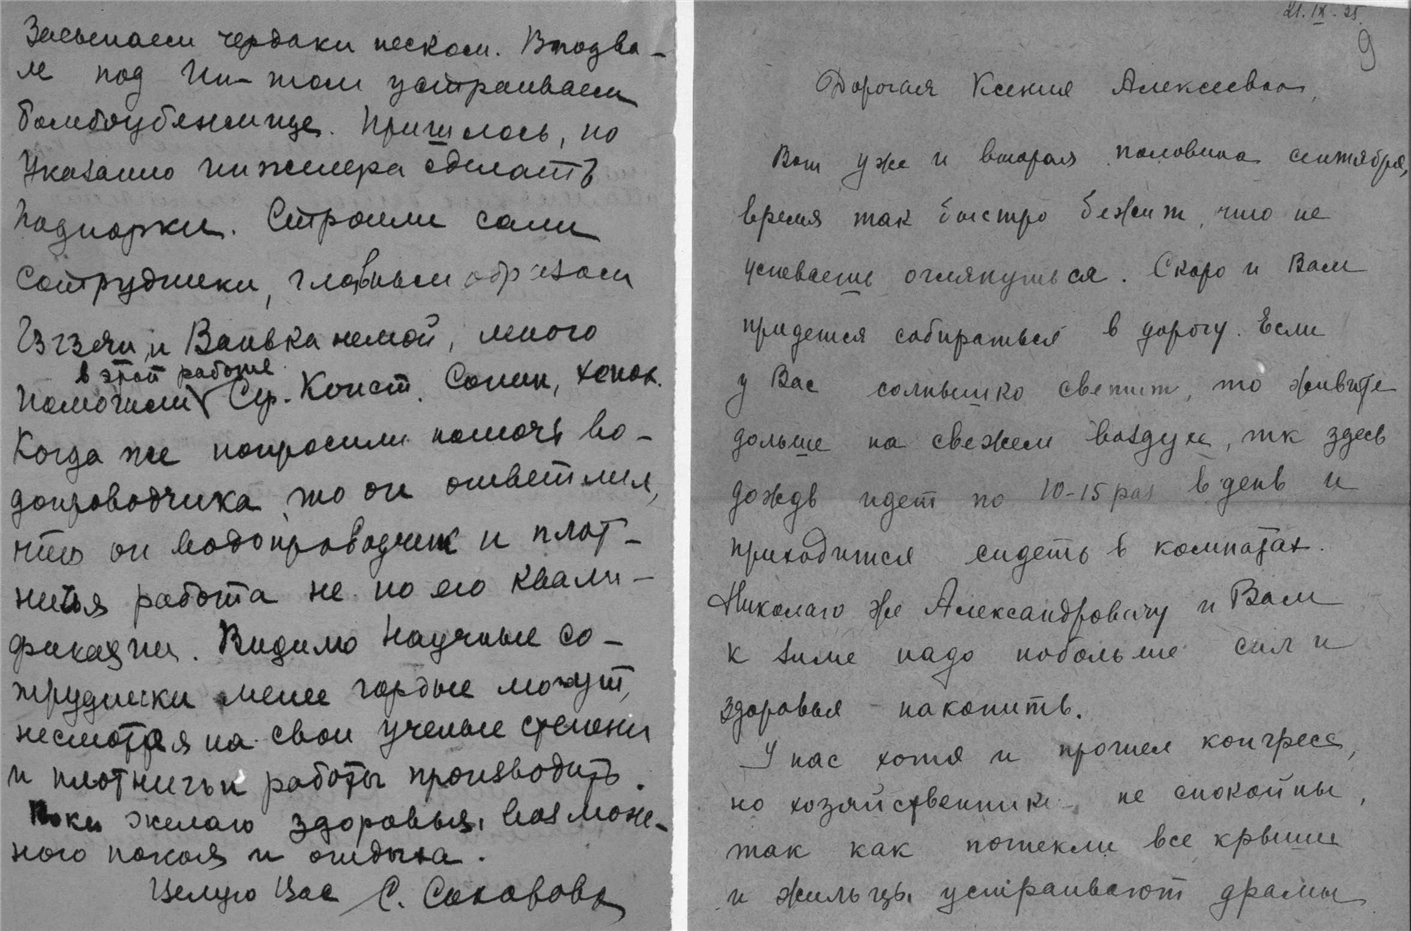 Засыпаем чердаки песком. В подва-
ле под Ин-том устраиваем
бомбоубежище. Пришлось, по
указанию инженера сделать
подпорки. Строили сами
сотрудники, главным образом
и Ванька немой, много
в этой работе
помогали Сер. Конст. Сонин,
Когда же попросили помочь во-
допроводчика, то он ответил,
что он водопроводчик и плот-
ничья работа не по его квали-
фикации. Видимо научные со-
трудники менее гордые могут,
несмотря на свои ученые степени
и плотничьи работы производить.
Пока желаю здоровья, возмож-
ного покоя и отдыха.
Целую Вас С.
21.IX-35.
9
Дорогая Ксения Алексеевна,
Вот уже и вторая половина сентября,
время так быстро бежит, что не
успеваешь оглянуться. Скоро и Вам
придется собираться в дорогу. Если
у Вас солнышко светит, то живите
дольше на свежем воздухе, тк здесь
дождь идет по 10-15 раз в день и
приходится сидеть в комнатах.
Николаю же Александровичу и Вам
к зиме надо побольше сил и
здоровья накопить.
У нас хотя и прошел конгресс,
но хозяйственники не спокойны,
так как потекли все крыши
и жильцы устраивают драмы